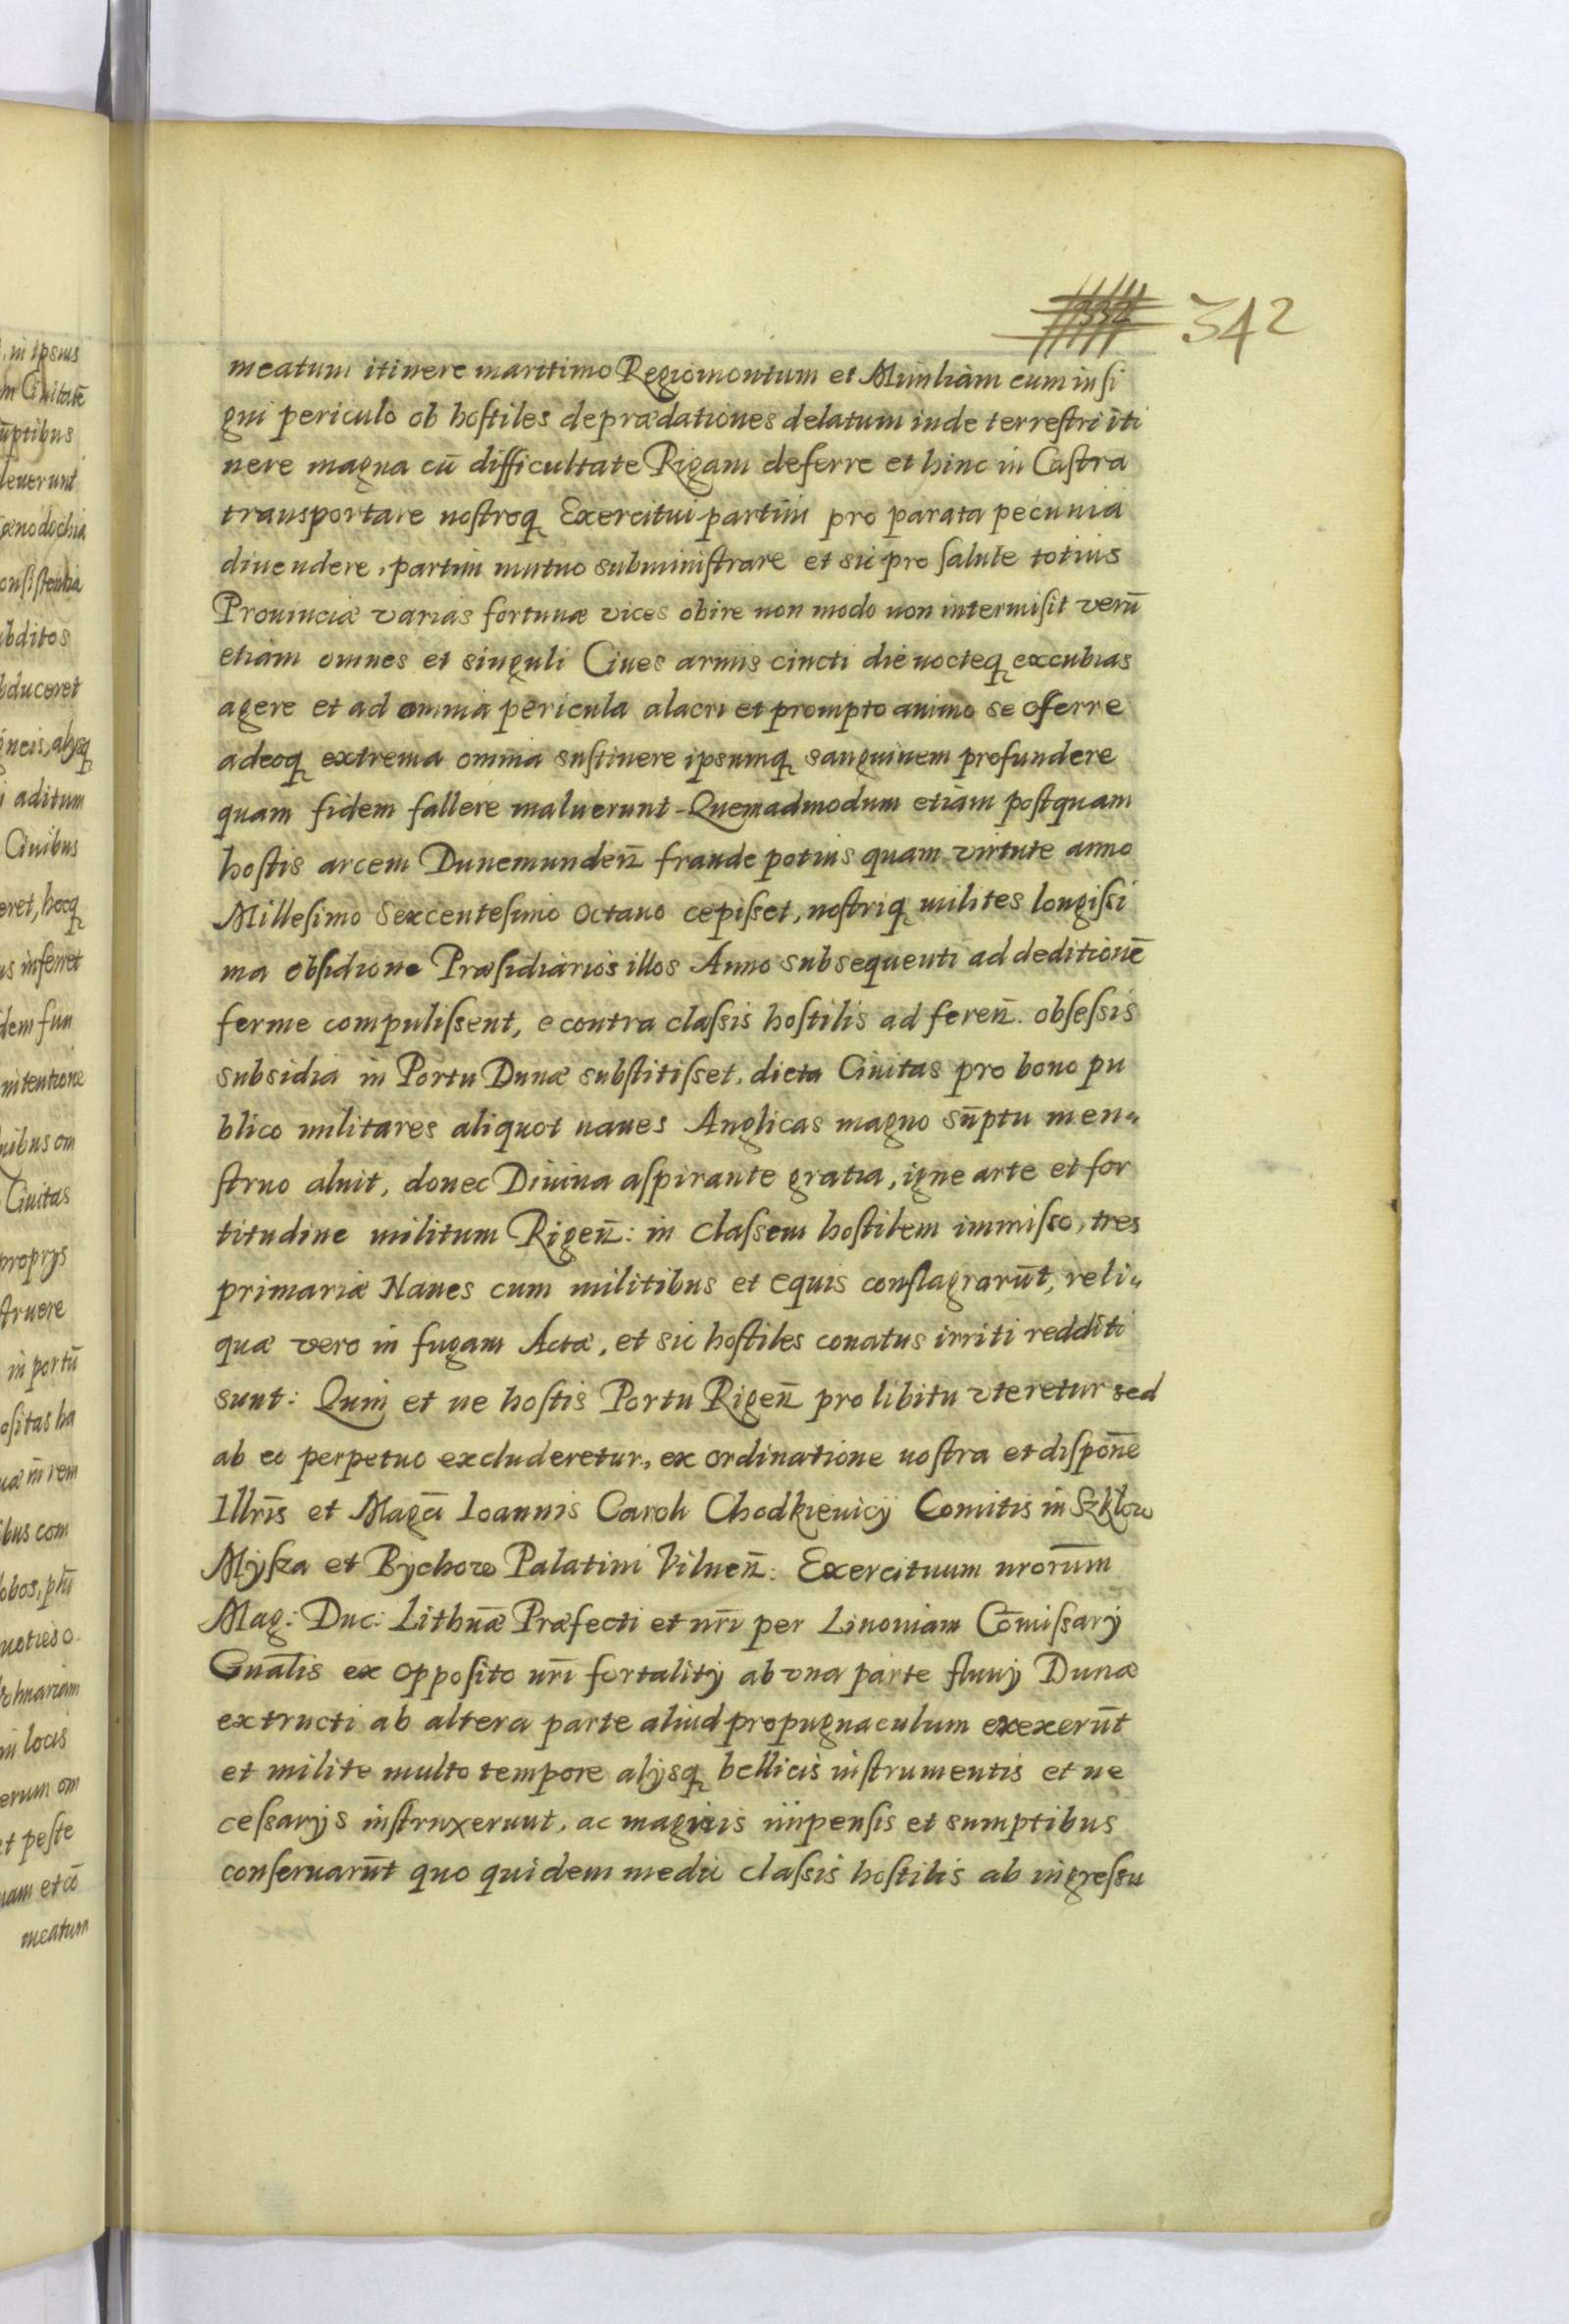 332 342
meatum itinere maritimo Regiomontum et Mimliam cum insi
gni periculo ob hostiles deprædationes delatum inde terrestri iti
nere magna cū difficultate Rigam deferre et hinc in Castra
transportare nostroq Exercitui partim pro parata pecunia
diuendere, partim mutuo subministrare et sic pro salute totius
Prouinciæ varias fortunæ vices obire non modo non intermisit verū
etiam omnes et singuli Ciues armis cincti die nocteq excubias
agere et ad omnia pericula alacri et prompto animo se offerre
adeoq extrema omnia sustinere ipsumq sanguinem profundere
quam fidem fallere maluerunt - Quemadmodum etiam postquam
hostis arcem Dunemundeñ fraude potius quam virtute anno
Millesimo Sexcentesimo Octauo cepisset, nostriq milites longissi
ma obsidione Præsidiarios illos Anno subsequenti ad deditionē
ferme compulissent, e contra classis hostilis ad fereñ. obsessis
subsidia in Portu Dunæ substitisset, dicta Ciuitas pro bono pu
blico militares aliquot naues Anglicas magno sūptu men„
struo aluit, donec Diuina aspirante gratia, igne arte et for
titudine militum Rigeñ: in classem hostilem immisso, tres
primariæ Naues cum militibus et equis conflagrarūt, reli„
quæ vero in fugam Actæ, et sic hostiles conatus irriti redditi
sunt: Quin et ne hostis Portu Rigeñ pro libitu vteretur sed
ab eo perpetuo excluderetur, ex ordinatione nostra et dispōne
Illrīs et Magci Ioannis Caroli Chodkieuicÿ Comitis in Szklow
Mÿsza et Bÿchow Palatini Vilneñ: Exercituum nrorūm
Mag: Duc: Lithuāæ Præfecti et nrī per Liuoniam Cōmissarÿ
Gnālis ex opposito nrī fortalitÿ ab vna parte fluuÿ Dunæ
extructi ab altera parte aliud propugnaculum exexerūt
et milite multo tempore alÿsq bellicis instrumentis et ne
cessarÿs instruxerunt, ac magnis impensis et sumptibus
conseruarūt quo quidem medio classis hostilis ab ingressu